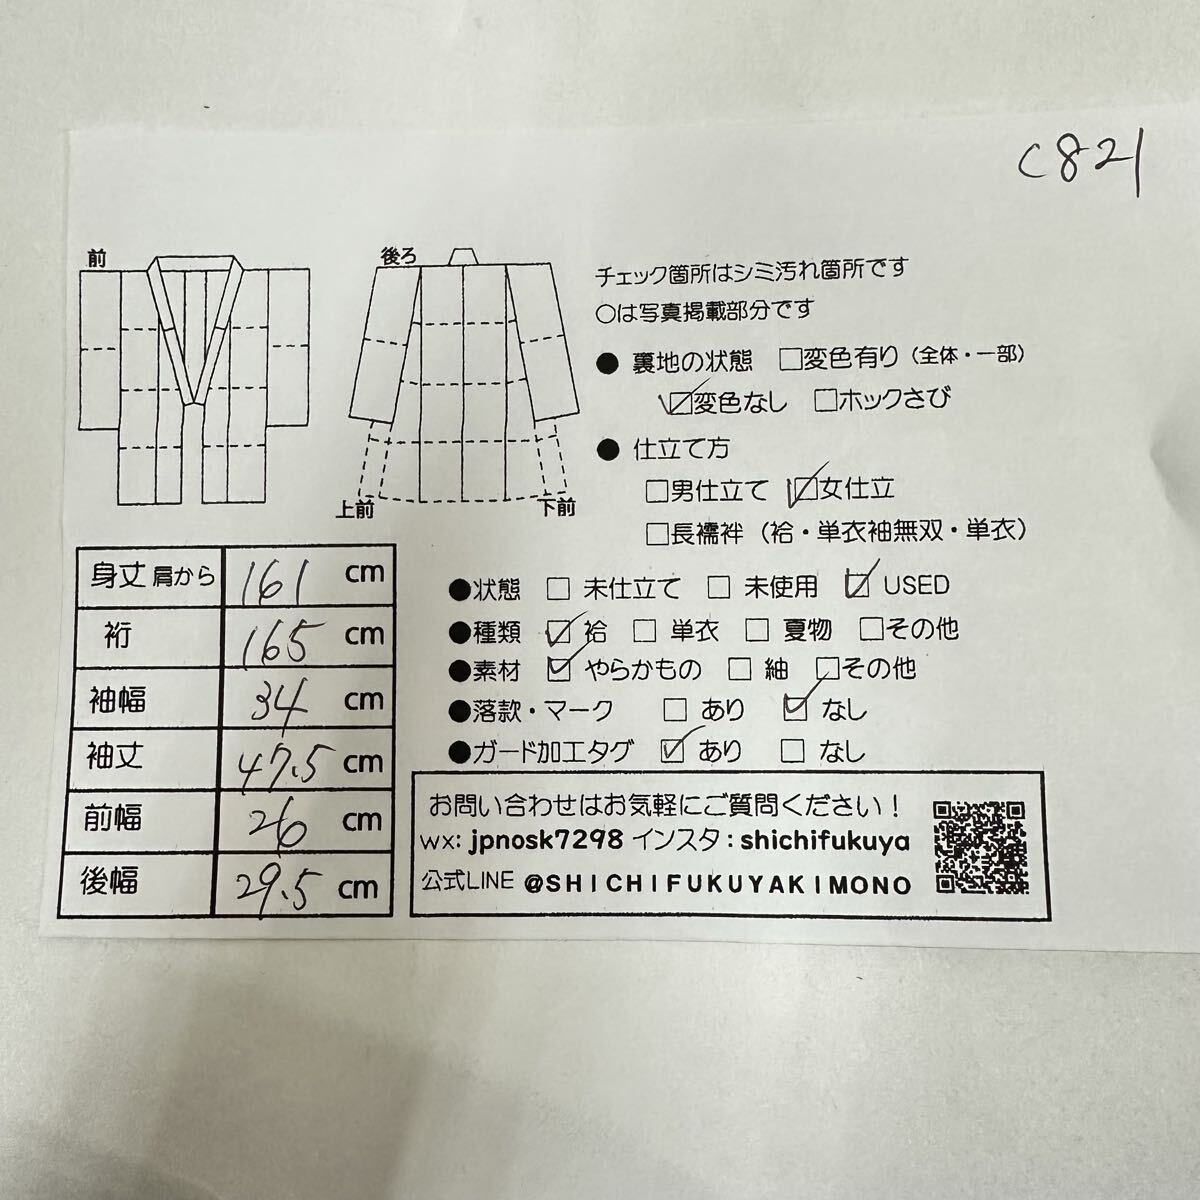 C821
前
後ろ
上前
下前
チェック箇所はシミ汚れ箇所です
○は写真掲載部分です
● 裏地の状態 □変色有り（全体・一部）
☑変色なし □ホックさび
● 仕立て方
□男仕立て ☑女仕立
□長襦袢（袷・単衣袖無双・単衣）
●状態 □ 未仕立て □ 未使用 ☑ USED
●種類 ☑ 袷 □ 単衣 □ 夏物 □その他
●素材 ☑ やらかもの □ 紬 □その他
●落款・マーク □ あり ☑ なし
●ガード加工タグ ☑ あり □ なし
身丈 肩から 161 cm
裄 165 cm
袖幅 34 cm
袖丈 47.5 cm
前幅 26 cm
後幅 29.5 cm
お問い合わせはお気軽にご質問ください！
wx: jpnosk7298 インスタ：shichifukuya
公式LINE @SHICHIFUKUYAKIMONO